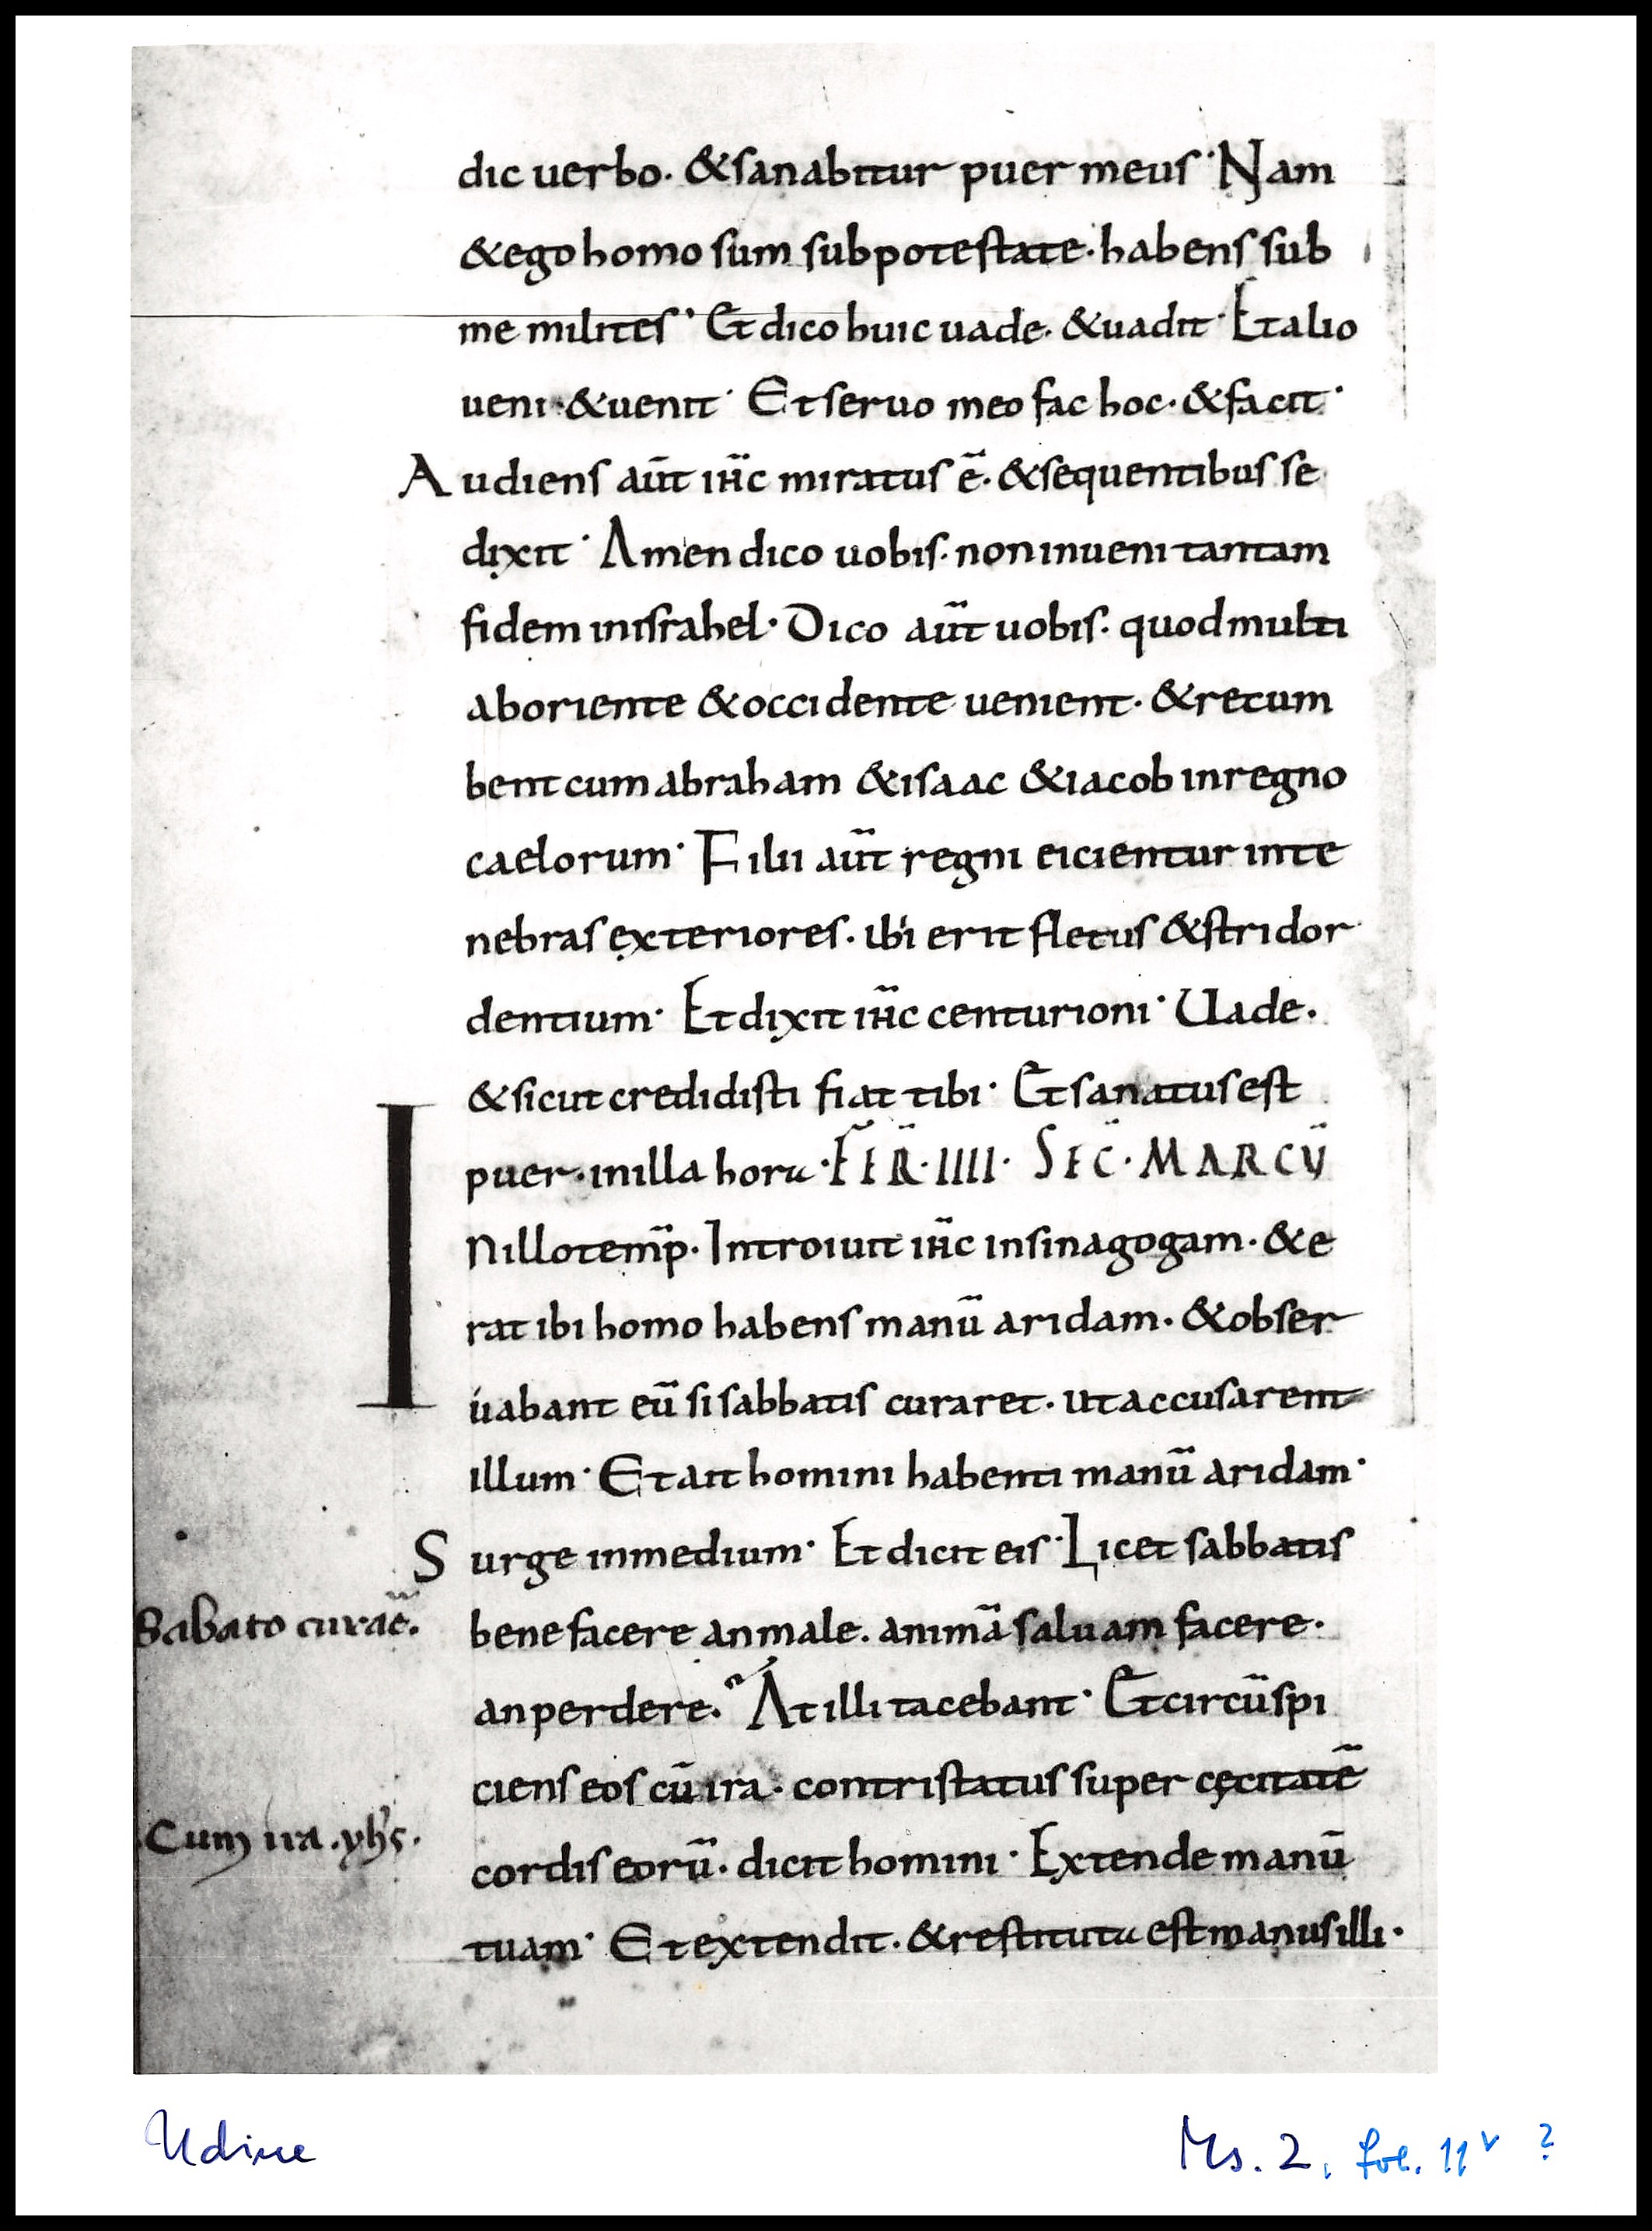 dic uerbo. &sanabitur puer meus· Nam
&ego homo sum sub potestate· habens sub
me milites· Et dico huic uade· &uadit· Et alio
ueni·&uenit· Et seruo meo fac hoc·&facit·
Audiens aūt ihc̄ miratus ē·&sequentibus se
dixit· Amen dico uobis· non inueni tantam
fidem in israhel· Dico aūt uobis· quod multi
ab oriente &occidente uenient· &recum
bent cum abraham &isaac &iacob in regno
caelorum· Filii aūt regni eicientur in te
nebras exteriores· ibi erit fletus &stridor
dentium· Et dixit ihc̄ centurioni· Uade·
&sicut credidisti fiat tibi· Et sanatus est
puer· in illa hora· FĒR̄·IIII· SEC̄· MARCŪ
IN illo temp̄· Introiuit ihc̄ in sinagogam· &e
rat ibi homo habens manū aridam· &obser
uabant eū si sabbatis curaret· ut accusarent
illum· Et ait homini habenti manū aridam·
Surge in medium· Et dicit eis· Licet sabbatis
Sabato curāē.
bene facere an male. animā saluam facere·
an perdere. At illi tacebant· Et circūspi
ciens eos cū ira· contristatus super cęcitatē
Cum ira .yhs̄.
cordis eorū· dicit homini· Extende manū
tuam· Et extendit· &restituta est manus illi·
Udine
Ms. 2, fol. 11v ?